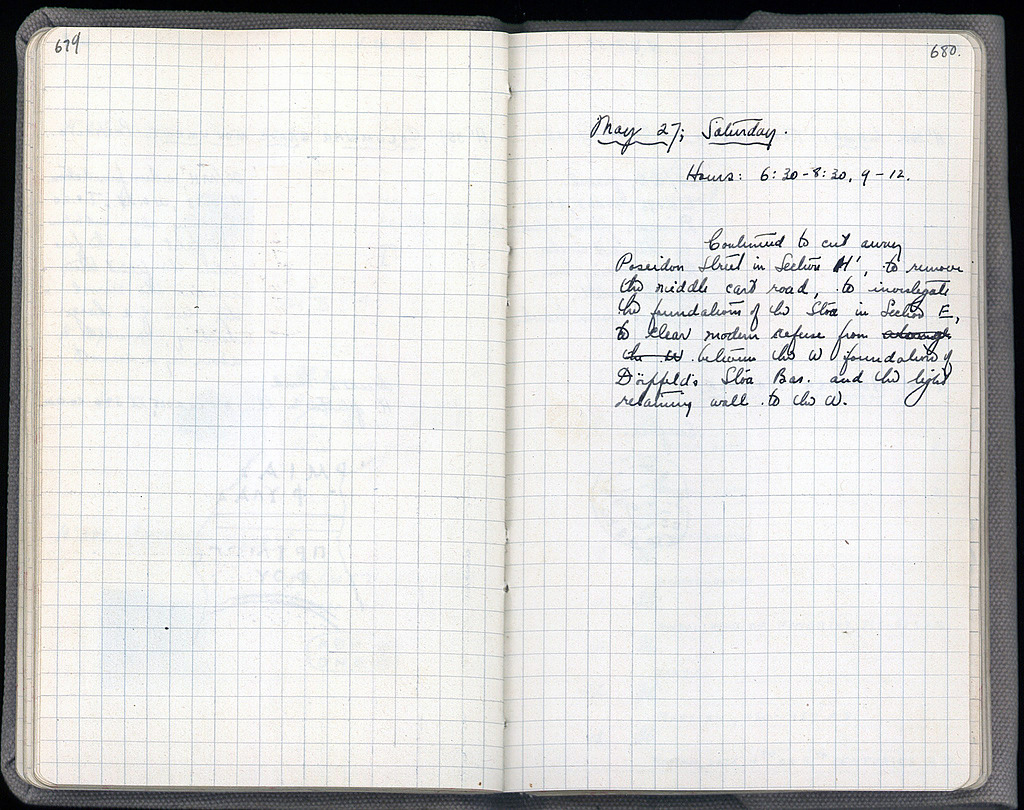 679
680.
May 27; Saturday.
Hours: 6:30-8:30, 9-12.
Continued to cut away
Poseidon Street in Section H', to remove
the middle cart road, to investigate
the foundations of the Stoa in Section E,
to clear modern refuse from
the W between the W foundation of
Dörpfeld's Stoa Bas. and the light
retaining wall to the W.